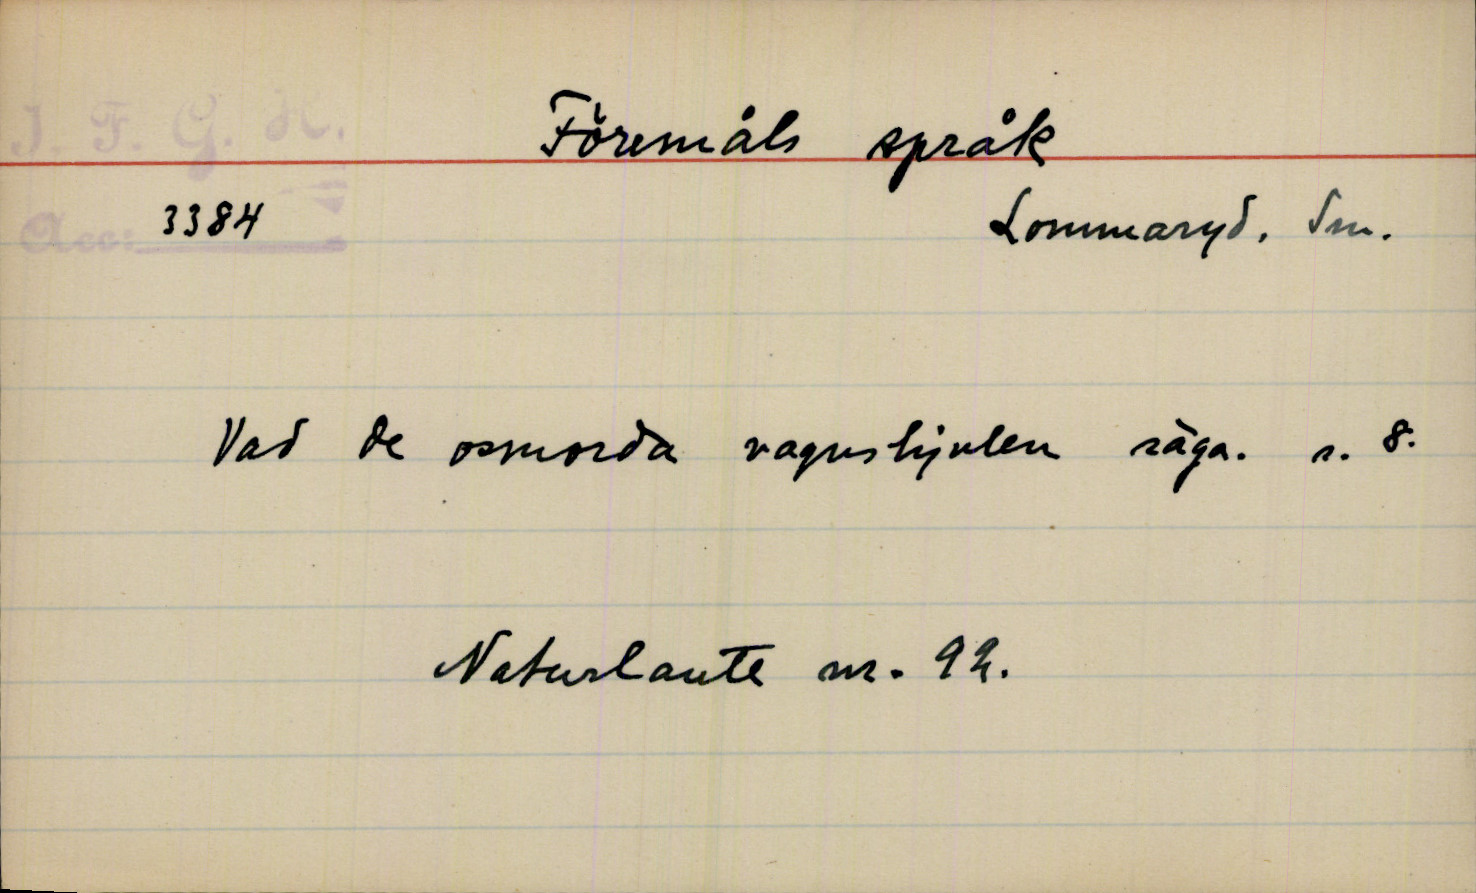 I. F. G. H.
Föremåls språk
Acc: 3384
Lommaryd. Sm.
Vad de osmorda vagnshjulen säga. s. 8.
Naturlaute nr. 92.